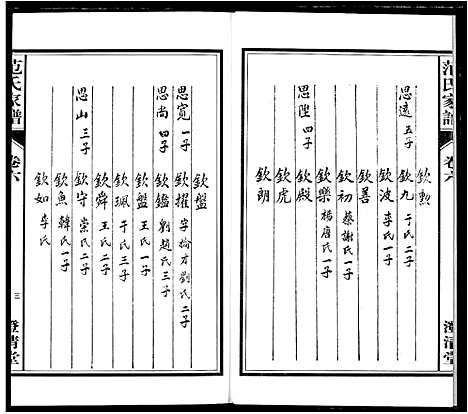 范氏家譜
卷六
澄清堂
思遠 五子
欽勲
欽九 于氏二子
欽波 李氏一子
欽善
欽初 蔡謝氏一子
欽樂 楊唐氏一子
思陞 四子
欽殿
欽虎
欽朗
欽盤
思寬 一子
欽擢 字掄才 劉氏二子
思尚 四子
欽鑑 劉趙氏三子
欽盤 王氏一子
欽珮 于氏三子
欽舜 王氏二子
思山 三子
欽守 崇氏二子
欽魚 韓氏一子
欽如 李氏
范氏家譜
卷六
三
澄清堂